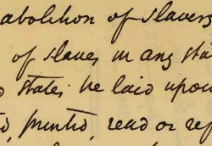 abolition of slavery
of slaves in any sta
d states be laid upon
d, printed, read or ref